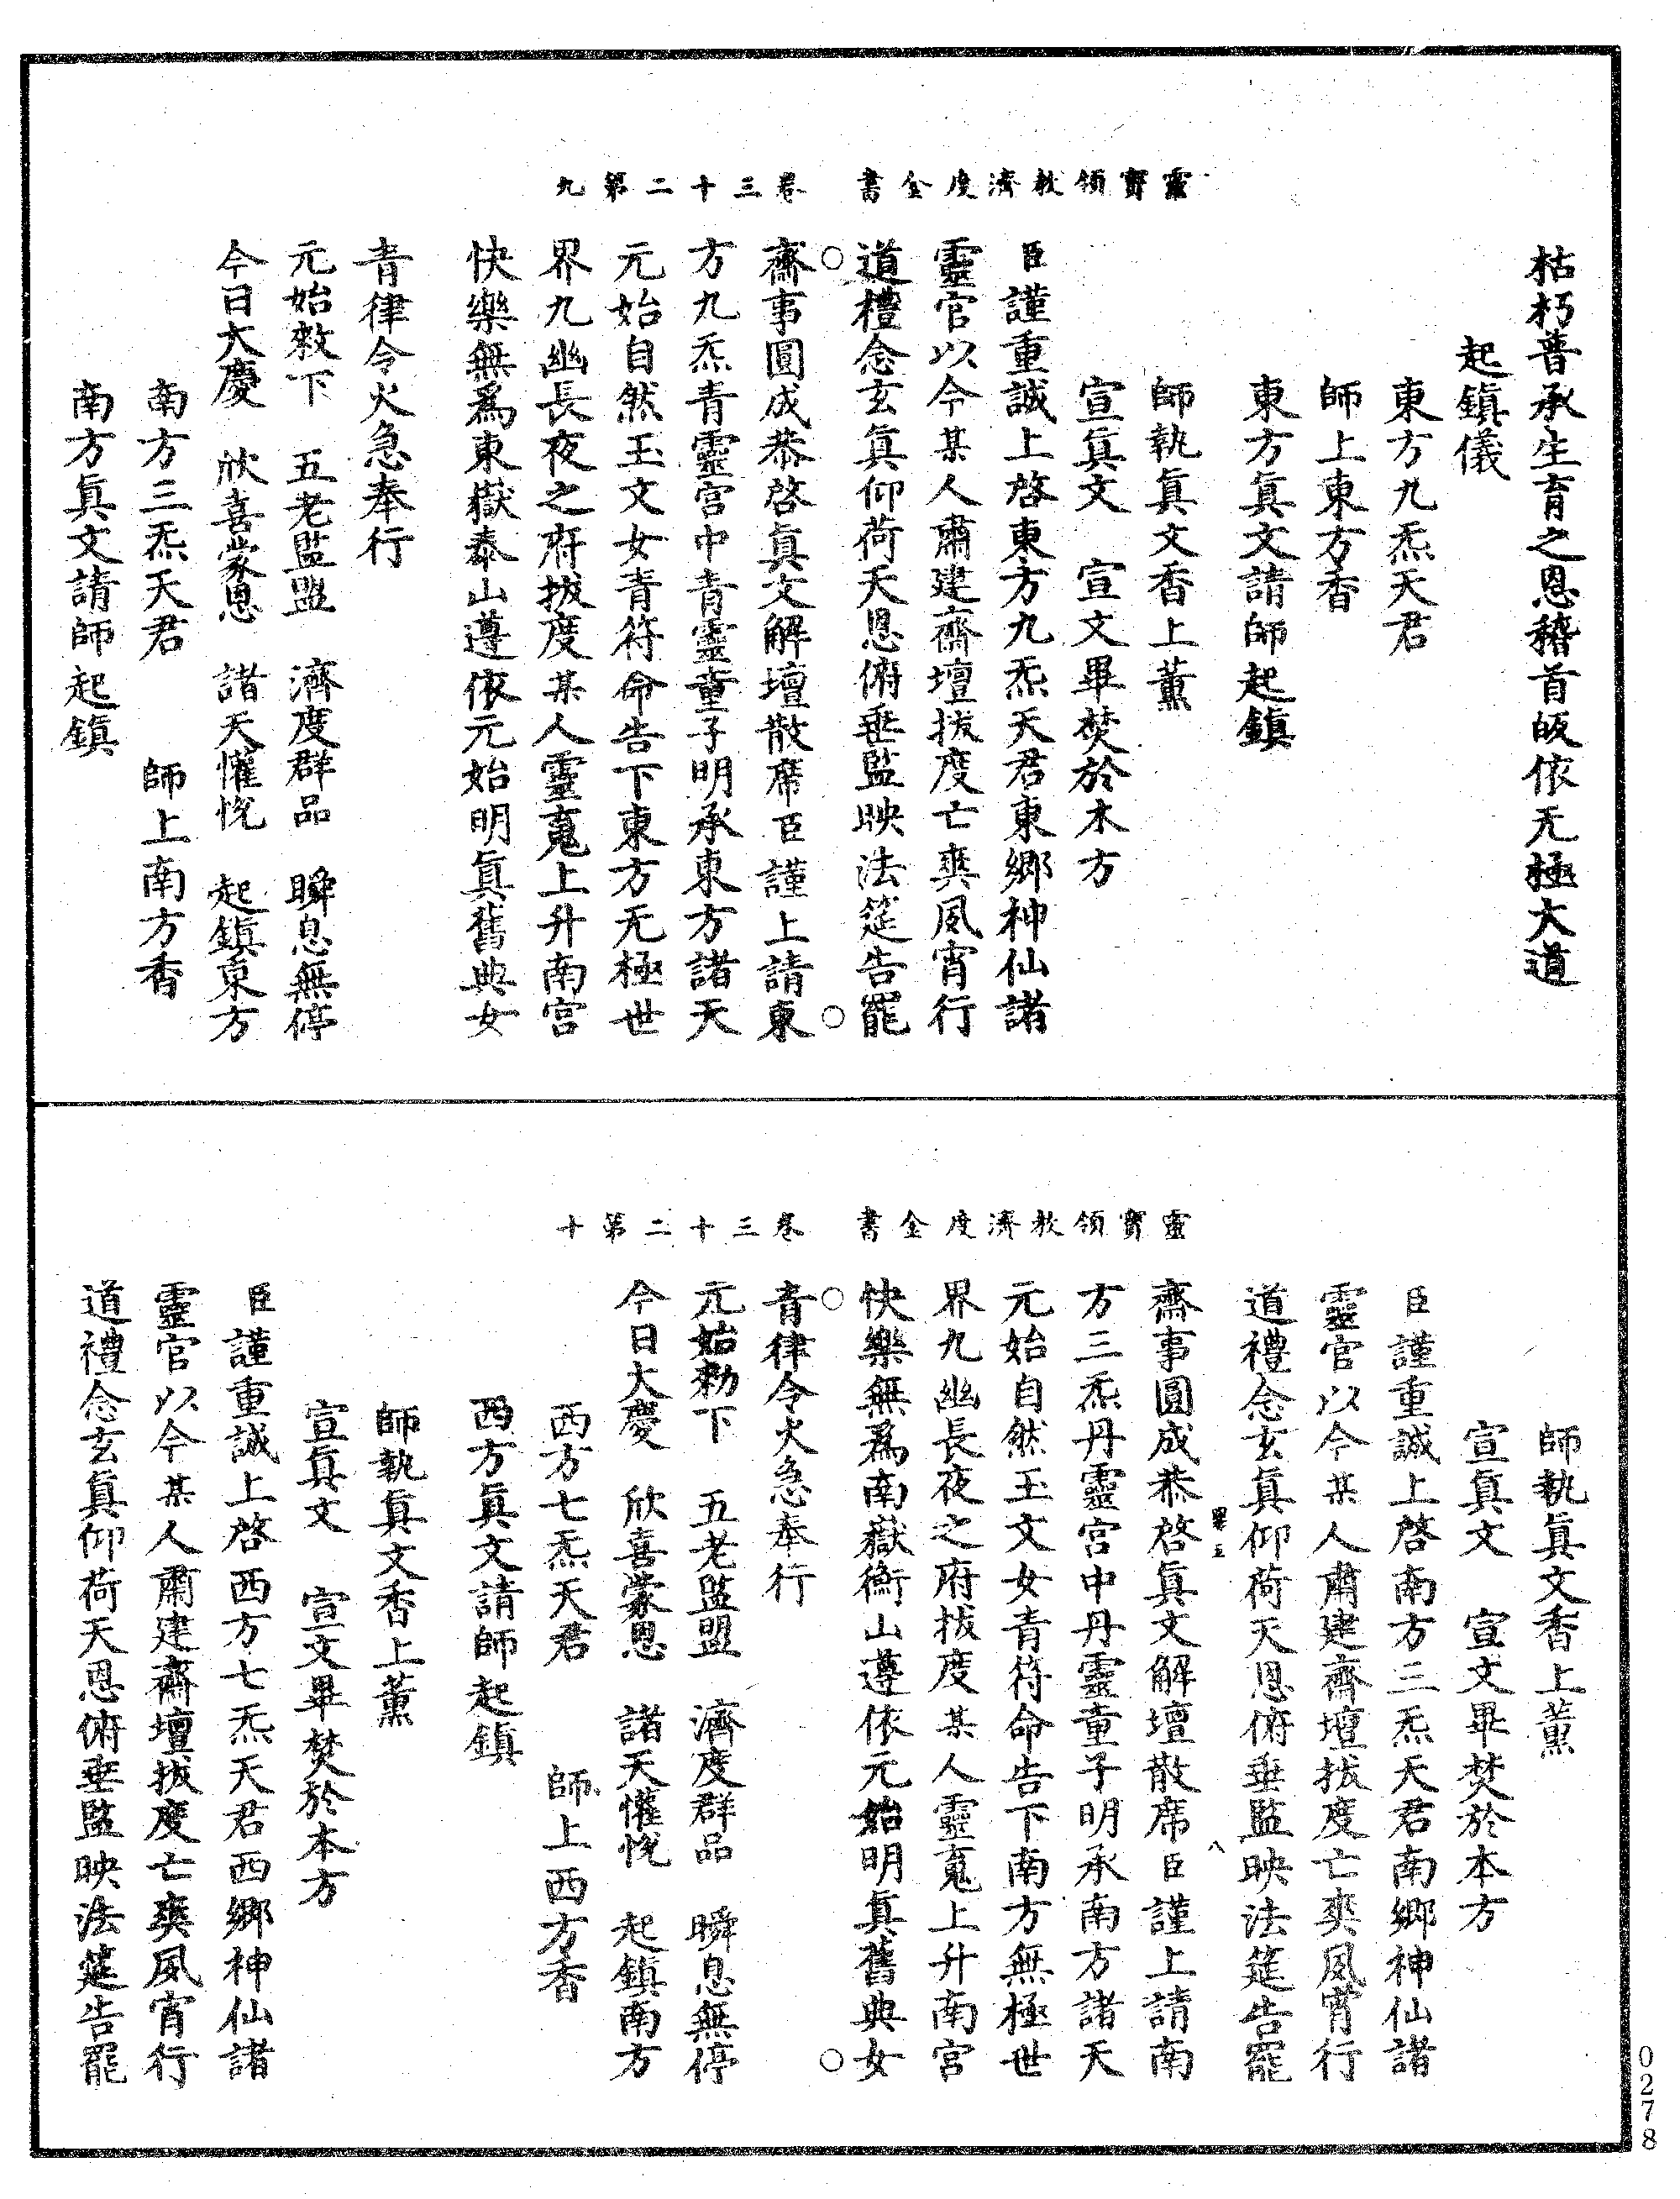 枯朽普承生育之恩稽首皈依无極大道
起鎮儀
東方九炁天君
師上東方香
東方眞文請師起鎮
師執眞文香上薰
宣眞文　宣文畢焚於木方
臣謹重誠上啓東方九炁天君東鄉神仙諸
靈官以今某人肅建齋壇拔度亡爽夙宵行
道禮念玄眞仰荷天恩俯垂監映法筵告罷
靈寶領教濟度金書　卷三十二第九
齋事圓成恭啓眞文解壇散席臣謹上請東
方九炁青靈宮中青靈童子明承東方諸天
元始自然玉文女青符命告下東方无極世
界九幽長夜之府拔度某人靈䰟上升南宮
快樂無爲東嶽泰山遵依元始明眞舊典女
青律令火急奉行
元始敕下　五老監盟　濟度群品　瞬息無停
今日大慶　欣喜蒙恩　諸天懽悅　起鎮東方
南方三炁天君　師上南方香
南方眞文請師起鎮
師執眞文香上薰
宣眞文　宣文畢焚於本方
臣謹重誠上啓南方三炁天君南鄉神仙諸
靈官以今某人肅建齋壇拔度亡爽夙宵行
道禮念玄眞仰荷天恩俯垂監映法筵告罷
齋事圓成恭啓眞文解壇散席臣謹上請南
方三炁丹靈宮中丹靈童子明承南方諸天
元始自然玉文女青符命告下南方無極世
界九幽長夜之府拔度某人靈䰟上升南宮
快樂無爲南嶽衡山遵依元始明眞舊典女
靈寶領教濟度金書　卷三十二第十
青律令火急奉行
元始勑下　五老監盟　濟度群品　瞬息無停
今日大慶　欣喜蒙恩　諸天懽悅　起鎮南方
西方七炁天君　師上西方香
西方眞文請師起鎮
師執眞文香上薰
宣眞文　宣文畢焚於本方
臣謹重誠上啓西方七炁天君西鄉神仙諸
靈官以今某人肅建齋壇拔度亡爽夙宵行
道禮念玄眞仰荷天恩俯垂監映法筵告罷
0278